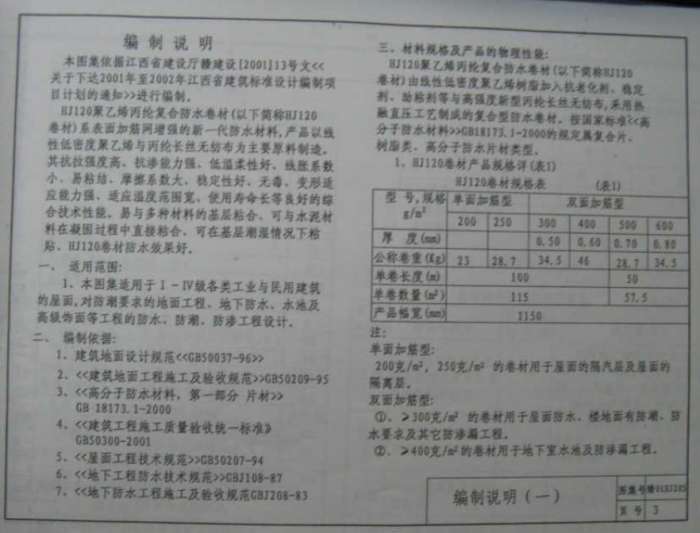 编制说明
本图集依据江西省建设厅赣建设[2001]13号文<<
关于下达2001年至2002年江西省建筑标准设计编制项
目计划的通知>>进行编制。
HJ120聚乙烯丙纶复合防水卷材(以下简称HJ120
卷材)系表面加筋网增强的新一代防水材料,产品以线
性低密度聚乙烯与丙纶长丝无纺布为主要原料制造。
其抗拉强度高、抗渗能力强、低温柔性好、线胀系数
小、易粘结、摩擦系数大、稳定性好、无毒、变形适
应能力强、适应温度范围宽、使用寿命长等良好的综
合技术性能。易与多种材料的基层粘合、可与水泥材
料在凝固过程中直接粘合、可在基层潮湿情况下粘
贴、HJ120卷材防水效果好。
一、适用范围:
1、本图集适用于Ⅰ-Ⅳ级各类工业与民用建筑
的屋面,对防潮要求的地面工程、地下防水、水池及
高级饰面等工程的防水、防潮、防渗工程设计。
二、编制依据:
1、建筑地面设计规范<<GB50037-96>>
2、<<建筑地面工程施工及验收规范>>GB50209-95
3、<<高分子防水材料，第一部分 片材>>
GB 18173.1-2000
4、<<建筑工程施工质量验收统一标准》
GB50300-2001
5、<<屋面工程技术规范>>GB50207-94
6、<<地下工程防水技术规范>>GBJ108-87
7、<<地下防水工程施工及验收规范GBJ208-83
三、材料规格及产品的物理性能:
HJ120聚乙烯丙纶复合防水卷材(以下简称HJ120
卷材)由线性低密度聚乙烯树脂加入抗老化剂、稳定
剂、助粘剂等与高强度新型丙纶长丝无纺布,采用热
融直压工艺制成的复合型防水卷材。按国家标准<<高
分子防水材料>>GB18173.1-2000的规定属复合片、
树脂类、高分子防水片材类型。
1、HJ120卷材产品规格详(表1)
HJ120卷材规格表 (表1)
型 号,规格 单面加筋型 双面加筋型
g/m² 200 250 300 400 500 600
厚 度(mm) 0.50 0.60 0.70 0.80
公称卷重(Kg) 23 28.7 34.5 46 28.7 34.5
单卷长度(m) 100 50
单卷数量(m²) 115 57.5
产品幅宽(mm) 1150
注:
单面加筋型:
200克/m², 250克/m² 的卷材用于屋面的隔汽层及屋面的
隔离层。
双面加筋型:
①、≥300克/m² 的卷材用于屋面防水、楼地面有防潮、防
水要求及其它防渗漏工程。
②、≥400克/m²的卷材用于地下室水池及防渗漏工程。
编制说明(一)
图集号
页 号 3